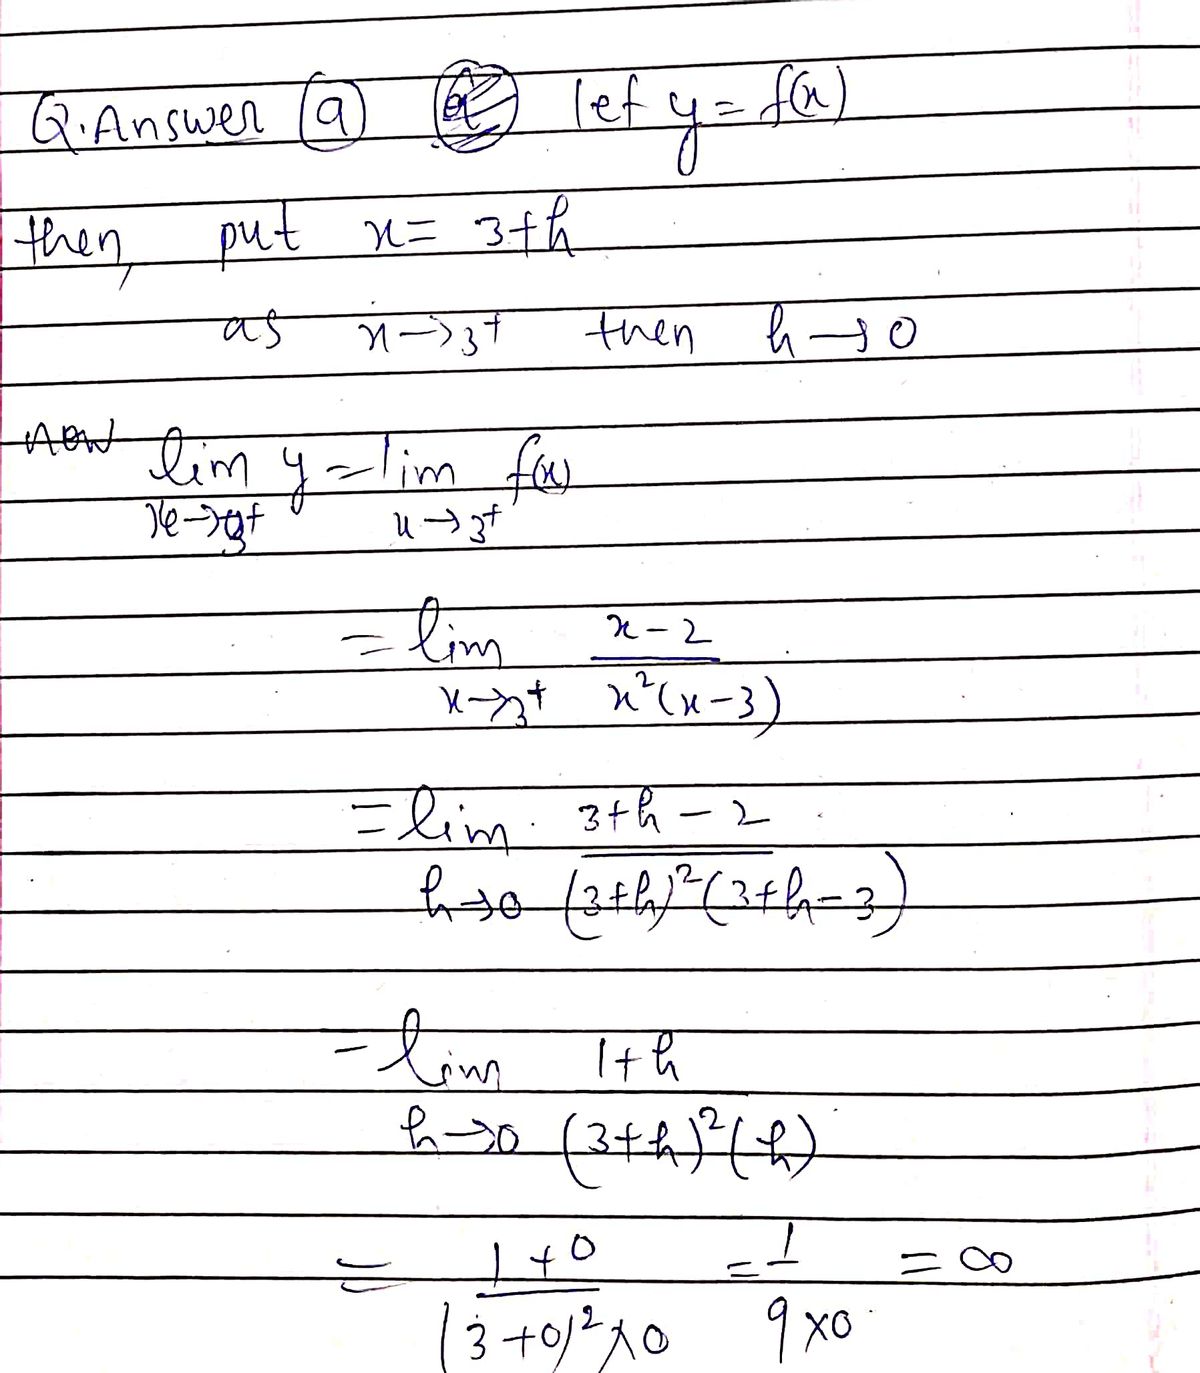 Q. Answer (a) let y = f(x)
then, put x = 3+h
as x→3⁺ then h→0
now lim y = lim f(x)
x→3⁺ x→3⁺
= lim x-2
x→3⁺ x²(x-3)
= lim 3+h-2
h→0 (3+h)²(3+h-3)
= lim 1+h
h→0 (3+h)²(h)
= 1+0 = 1 = ∞
(3+0)²×0 9×0